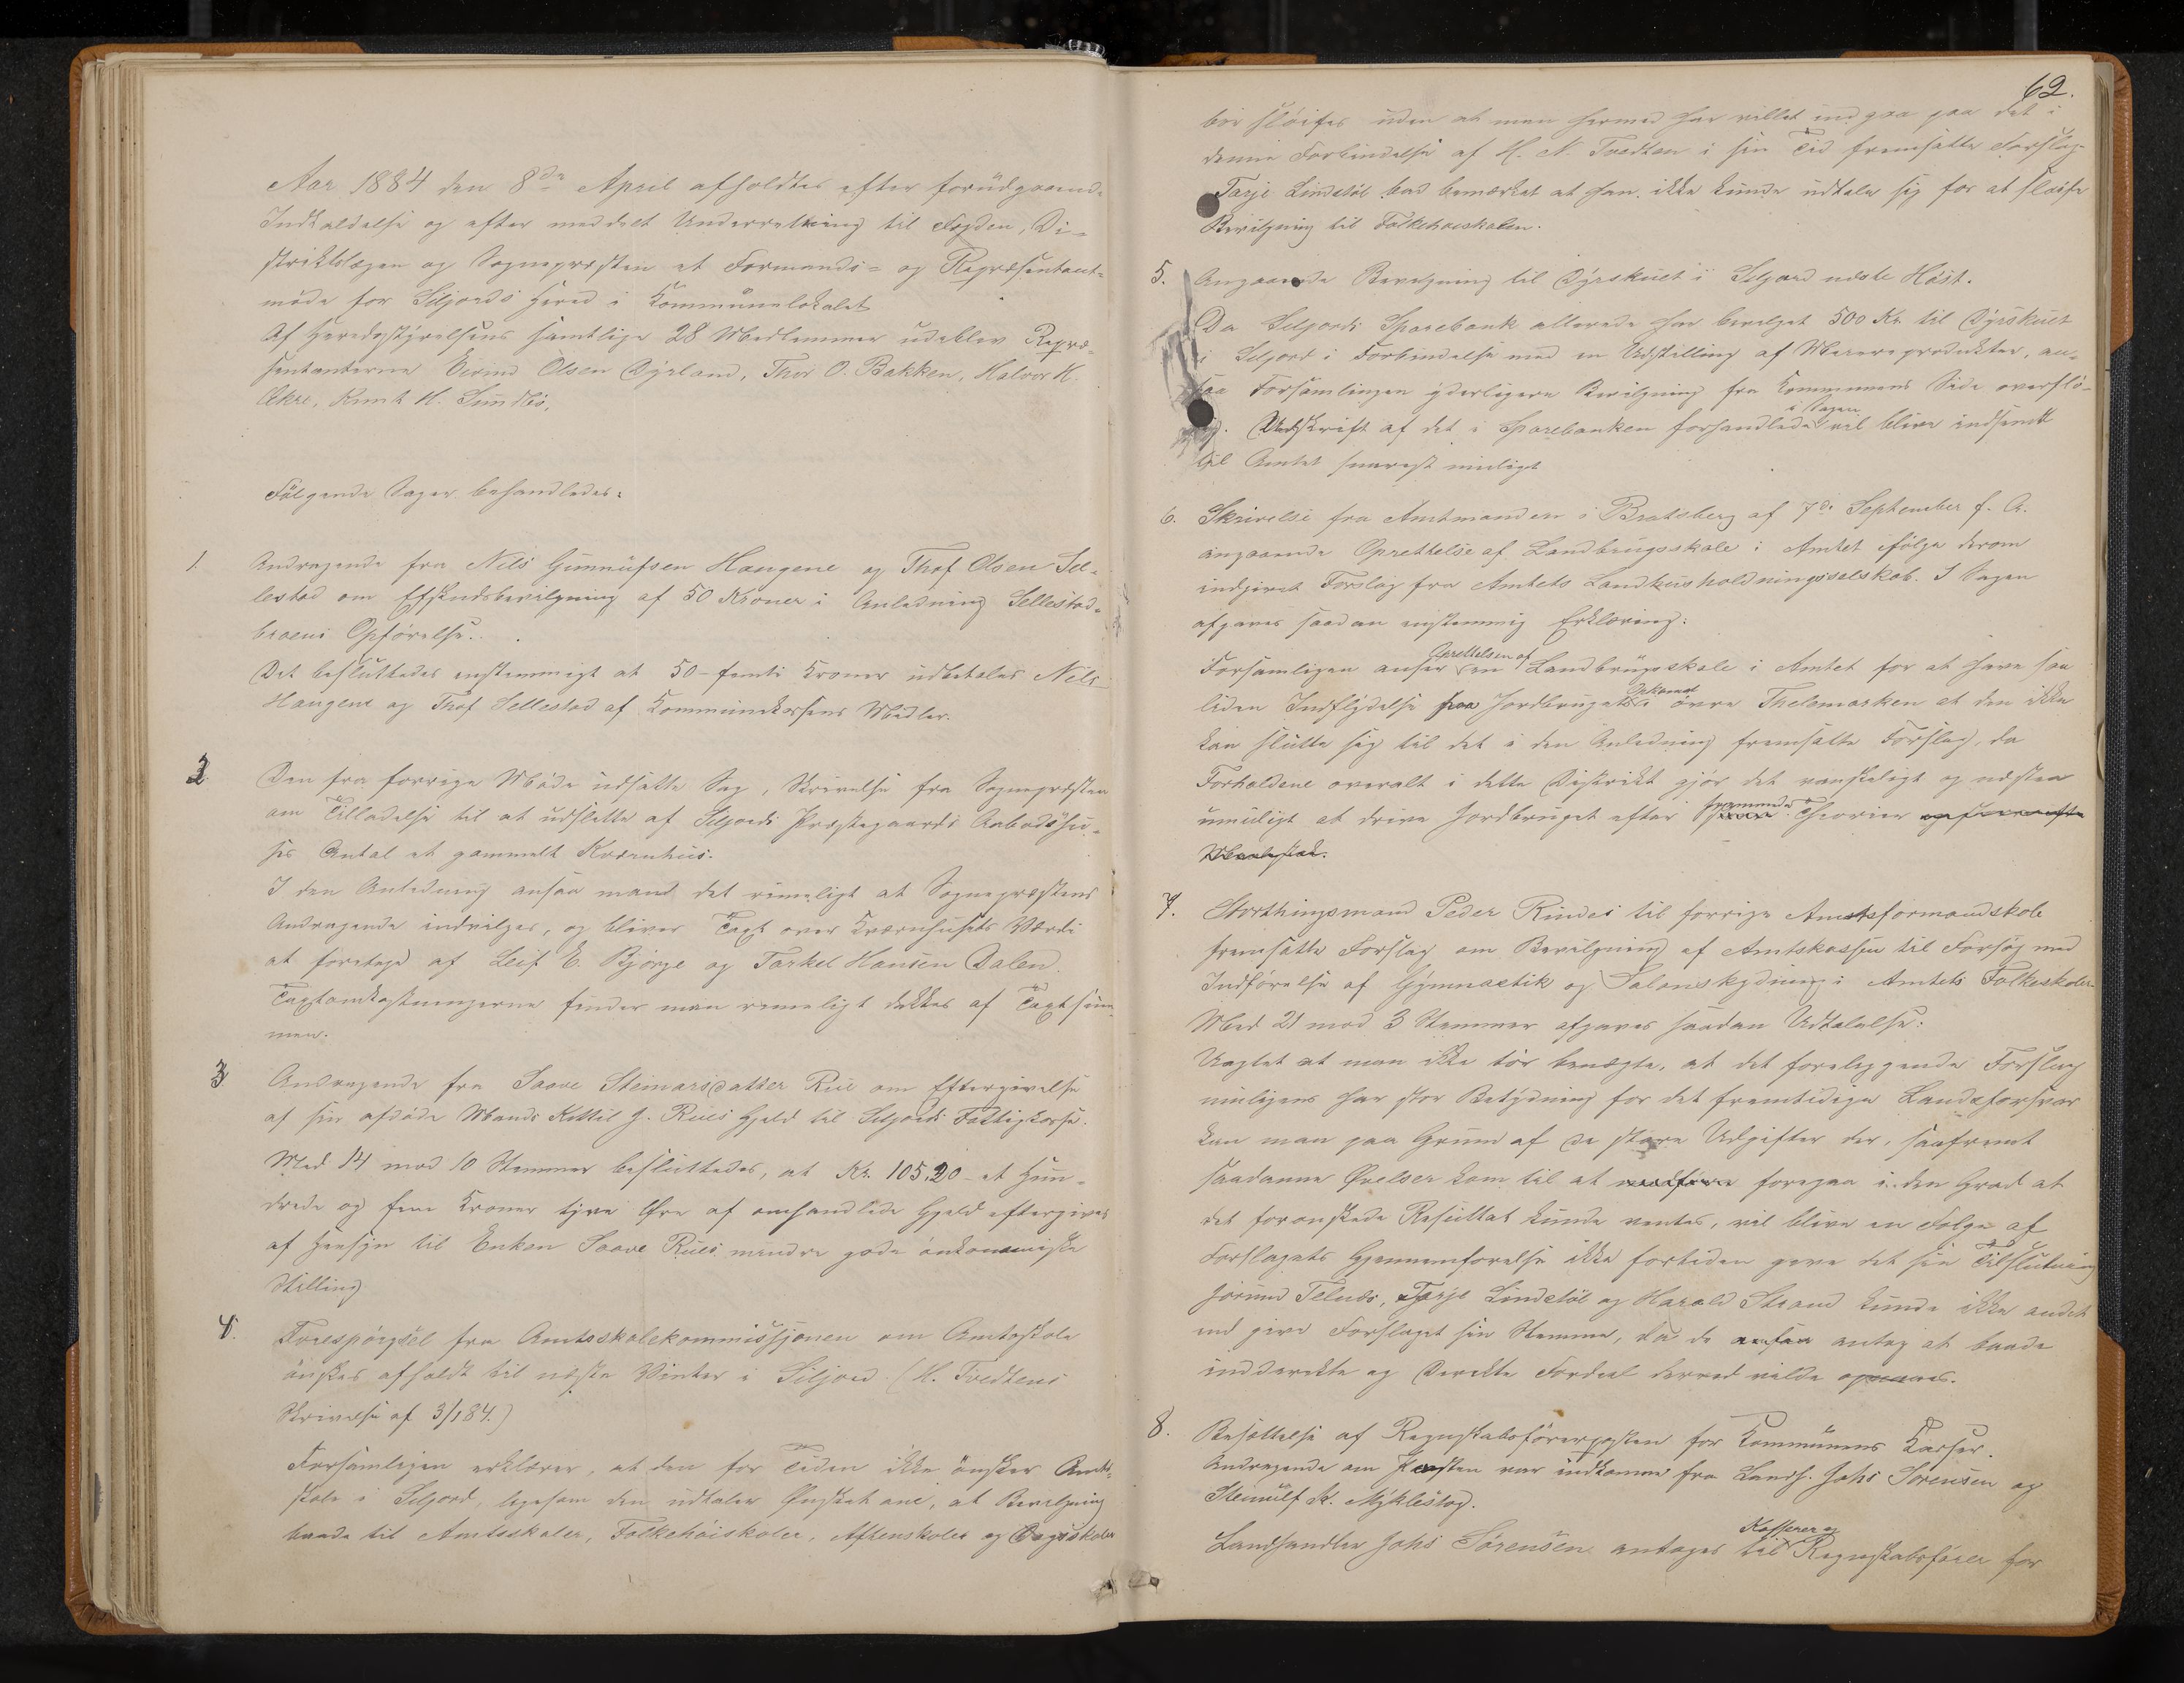 Aar 1884 den 8de April afholdtes efter forudgaaende
Indkaldelse og efter meddelt Underretning til Fogden, Di-
striktslægen og Sognepresten et Formands- og Repræsentant-
møde for Siljords Hered i Kommunelokalet
Af Heredsstyrelsens samtlige 28 Medlemmer udeblev Repræ-
sentanterne Eivind Olsen Dyrland, Thor O. Bakken, Halvor H.
Ekre, Knut H. Sundbø,
Følgende Sager behandledes:
1. Andragende fra Nils Gunnufsen Haugene og Thof Olsen Sel-
lestad om Efskudsbevilgning af 50 Kroner i Anledning Sellestad-
broens Opførelse.
Det besluttedes enstemmigt at 50-femti Kroner udbetales Nils
Haugene og Thof Sellestad af Kommunekassens Midler.
2. Den fra forrige Møde udsatte Sag, Skrivelse fra Sognepresten
om Tilladelse til at udslette af Siljords Prestegaards Aabodshu-
ses Antal et gammelt Kværnhus.
I den Anledning ansaa mand det rimeligt at Sogneprestens
Andragende indvilges, og bliver Taxt over Kværnhusets Værdi
at foretage af Leif E. Bjørge og Tarkel Hansen Dalen.
Taxtomkostningerne finder man rimeligt dekkes af Taxtsum-
men.
3 Andragende fra Saave Steinarsdatter Rue om Eftergivelse
af sin afdøde Mands Kittil G. Rues Gjeld til Siljords Fattigkasse.
Med 14 mod 10 Stemmer besluttedes, at Kr. 105,20 - et Hun-
drede og fem Kroner tyve Øre af omhandlede Gjeld eftergives
af Hensyn til Enken Saave Rues mindre gode ønkonomiske
Stilling
4. Forespørgsel fra Amtsskolekommissjonen om Amtsskole
ønskes afholdt til næste Vinter i Siljord. (H. Tvedtens
Skrivelse af 3/1 84.)
Forsamligen erklærer, at den for Tiden ikke ønsker Amts-
skole i Seljord, ligesom den udtaler Ønsket om, at Bevilgning
baade til Amtsskoler, Folkehøiskoler, Aftenskoler og Dagsskoler
62.
bør sløifes uden at man hermed har villet indgaa paa det i
denne Forbindelse af H. N. Tvedten i sin Tid fremsatte Forslag
Tarje Lindstøl bad bemærket at han ikke kunde udtale sig for at sløife
Bevilgning til Folkehøiskolen.
5. Angaaende Bevilgning til Dyrskuet i Seljord næste Høst.
Da Seljords Sparebank allerede har bevilget 500 Kr til Dyrskuet
i Seljord i Forbindelse med en Udstilling af Meieriprodukter, an-
saa Forsamlingen yderligere Bevilgning fra Kommunens Side overflø-
dig. Udskrift af det i Sparebanken forhandlede i Sagen vil blive indsendt
til Amtet snarest muligt
6. Skrivelse fra Amtmanden i Bratsberg af 7de September f. A.
angaaende Oprettelse af Landbrugsskole i Amtet ifølge derom
indgivet Forslag fra Amtets Landhusholdningsselskab. I Sagen
afgaves saadan enstemmig Erklæring:
Forsamligen anser Oprettelsen af en Landbrugsskole i Amtet for at have saa
liden Indflydelse paa Jordbrugets Opkomst i øvre Thelemarken at den ikke
kan slutte sig til det i den Anledning fremsatte Forslag, da
Forholdene overalt i dette Distrikt gjør det vanskeligt og næsten
umuligt at drive Jordbruget efter fremmede Theorier
7. Storthingsmand Peder Rindes til forrige Amtsformandskab
fremsatte Forslag om Bevilgning af Amtskassen til Forsøg med
Indførelse af Gymnastik og Salonskydning i Amtets Folkeskoler
Med 21 mod 3 Stemmer afgaves saadan Udtalelse:
Uagtet at man ikke tør benægte, at det foreliggende Forslag
muligens har stor Betydning for det fremtidige Landsforsvar
kan man paa Grund af de store Udgifter der, saafremt
saadanne Øvelser kom til at medføre foregaa i den Grad at
det forønskede Resultat kunde ventes, vil blive en Følge af
Forslagets Gjennemførelse ikke fortiden give det sin Tilslutning
Jørund Telnæs, Tarje Lindstøl og Harald Strand kunde ikke andet
end give Forslaget sin Stemme, da de ansaa antog at baade
indderekte og Derekte Fordeel derved vilde opnaaes.
8. Besættelse af Regnskabsførerposten for Kommunens Kasser.
Andragende om Posten var indkommen fra Landh. Johs Sørensen og
Steinulf K. Myklestog.
Landhandler Johs Sørensen antages til Kasserer og Regnskabsfører for